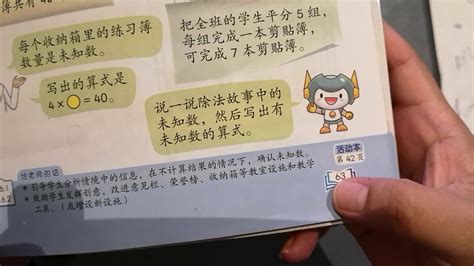 每个收纳箱里的练习簿
数量是未知数。
把全班的学生平分 5 组，
每组完成一本剪贴簿，
可完成 7 本剪贴簿。
写出的算式是
4×○=40。
说一说除法故事中的
未知数，然后写出有
未知数的算式。
活动本
第 42 页
给老师的话
引导学生分析情境中的信息，在不计算结果的情况下，确认未知数。
鼓励学生发挥创意，改进意见栏、荣誉榜、收纳箱等教室设施和教学
工具。（或增设新设施）
63